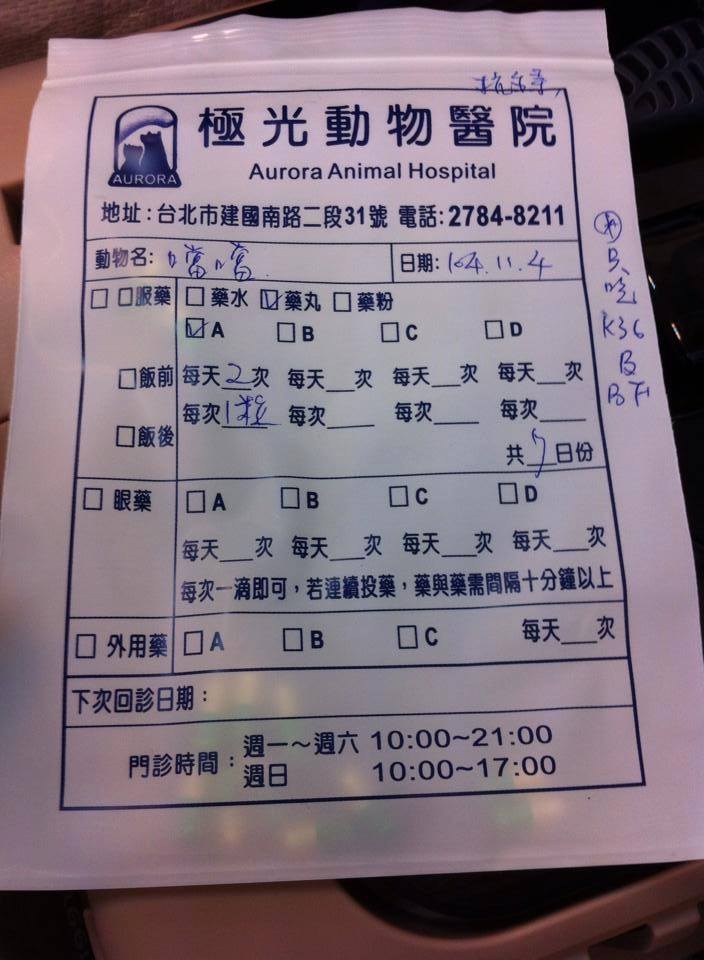 極光動物醫院
AURORA
Aurora Animal Hospital
地址：台北市建國南路二段31號 電話：2784-8211
動物名： 噹噹 日期： 104.11.4
□ □服藥 □藥水 ☑藥丸 □藥粉
☑A □B □C □D
□飯前 每天2次 每天__次 每天__次 每天__次
每次1粒 每次___ 每次___ 每次___
□飯後
共7日份
□ 眼藥 □A □B □C □D
每天__次 每天__次 每天__次 每天__次
每次一滴即可，若連續投藥，藥與藥需間隔十分鐘以上
□ 外用藥 □A □B □C 每天__次
下次回診日期：
門診時間： 週一～週六 10:00~21:00
週日 10:00~17:00
只
吃
K36
B